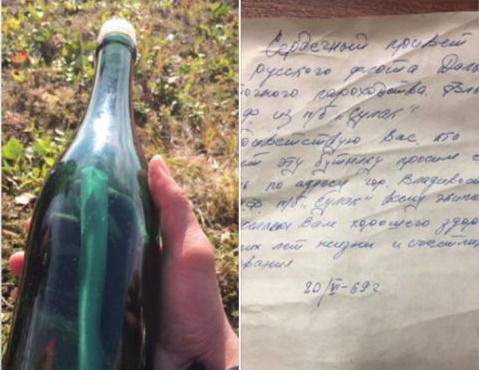 Сердечный привет
русского флота Даль
очного пароходства Вл
Ф из п/б „Сулак"
Приветствую Вас, кто
ет эту бутылку просим с
ь по адресу гор. Владивос
Ф. п/б „Сулак" всему экипа
Желаем Вам хорошего здор
гих лет жизни и счастли
вания
20/VI-69г